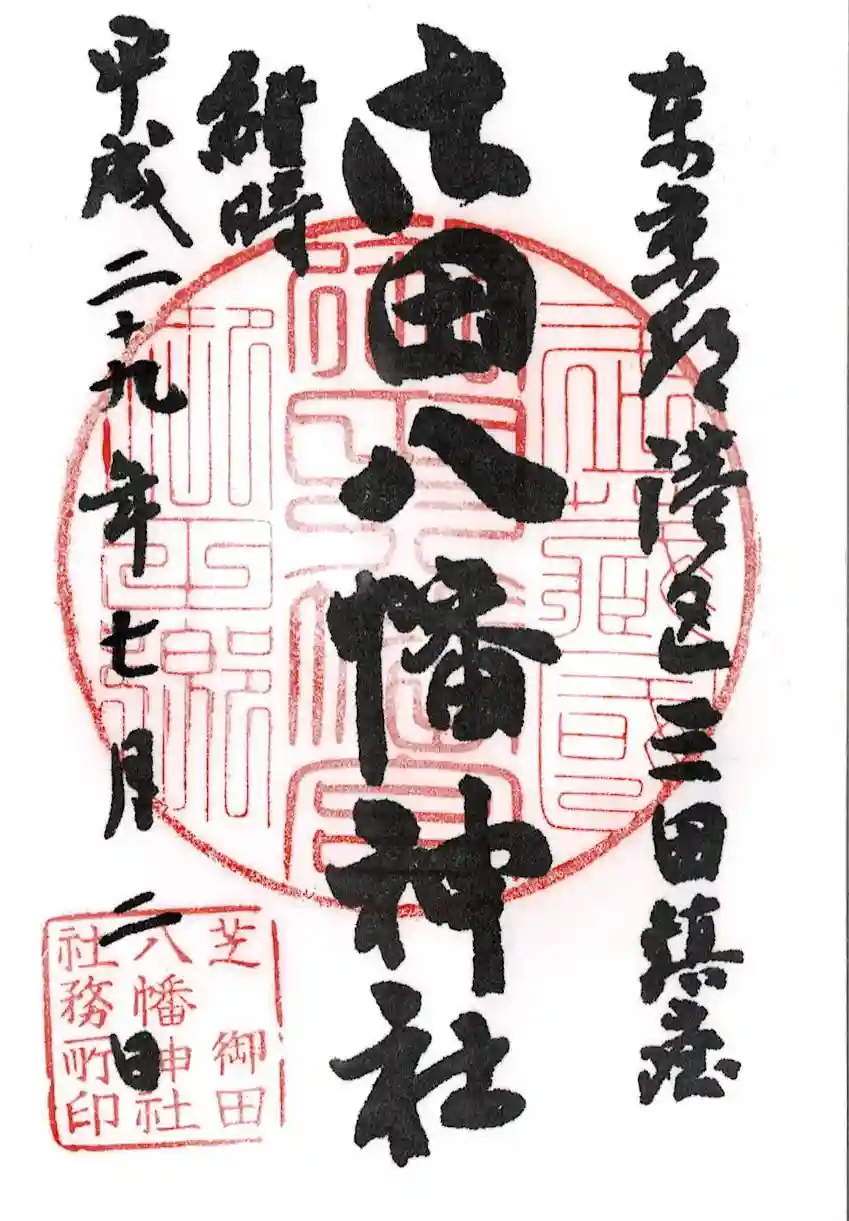 東京都港区三田鎮座
御田八幡神社
維時
平成二十九年七月二日
芝御田
八幡神社
社務所印